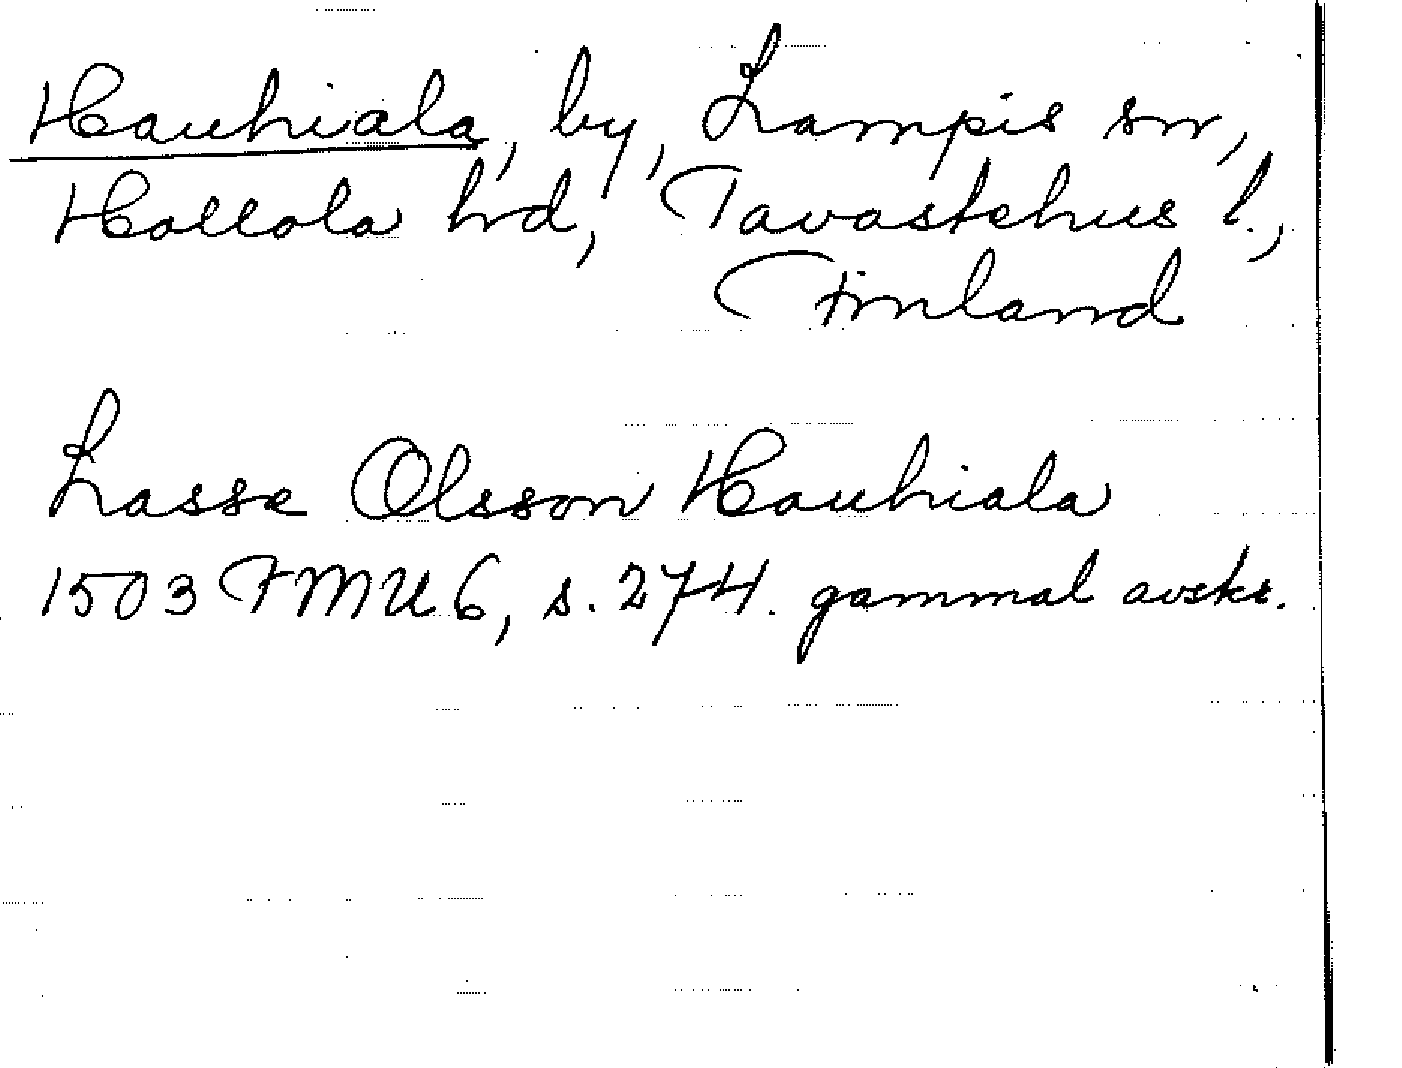 Hauhiala, by, Lampis sn,
Hollola hrd, Tavastehus l.,
Finland
Lasse Olsson Hauhiala
1503 FMU 6, s. 274. gammal avskr.